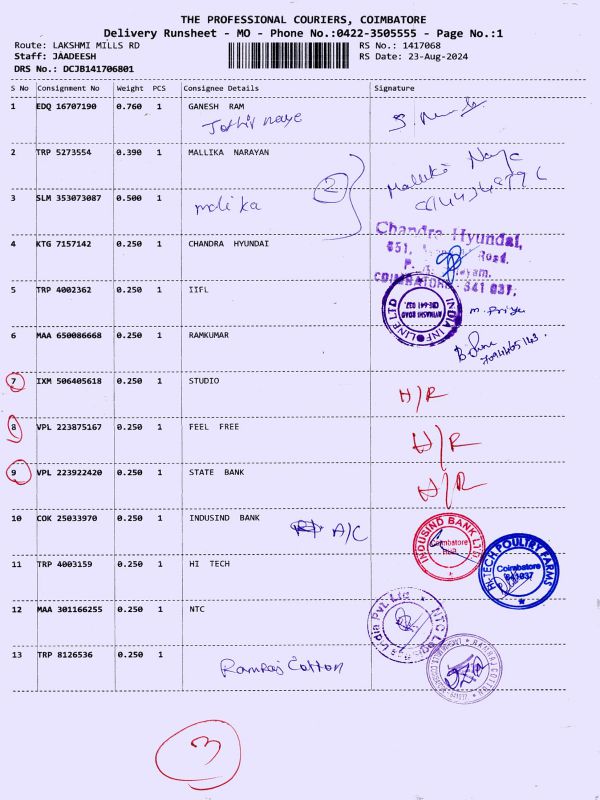 THE PROFESSIONAL COURIERS, COIMBATORE
Delivery Runsheet - MO - Phone No.:0422-3505555 - Page No.:1
Route: LAKSHMI MILLS RD
RS No.: 1417068
Staff: JAADEESH
RS Date: 23-Aug-2024
DRS No.: DCJB141706801
S No Consignment No Weight PCS Consignee Details Signature
1 EDQ 16707190 0.760 1 GANESH RAM
2 TRP 5273554 0.390 1 MALLIKA NARAYAN
2
3 SLM 353073087 0.500 1
Chandra Hyundai,
4 KTG 7157142 0.250 1 CHANDRA HYUNDAI
COIMBATORE 641 037.
5 TRP 4002362 0.250 1 IIFL
INDIA INFOLINE LTD
AVINASHI ROAD
CBE-641 037.
m. Priya
6 MAA 650086668 0.250 1 RAMKUMAR
7 IXM 506405618 0.250 1 STUDIO
H/R
8 VPL 223875167 0.250 1 FEEL FREE
H/R
9 VPL 223922420 0.250 1 STATE BANK
H/R
10 COK 25033970 0.250 1 INDUSIND BANK
A/C
INDUSIND BANK LTD
Coimbatore
HI-TECH POULTRY FARMS
Coimbatore
641037
11 TRP 4003159 0.250 1 HI TECH
12 MAA 301166255 0.250 1 NTC
NTC
India Pvt Ltd
13 TRP 8126536 0.250 1
Ramraj Cotton
RAMRAJ COTTON
3